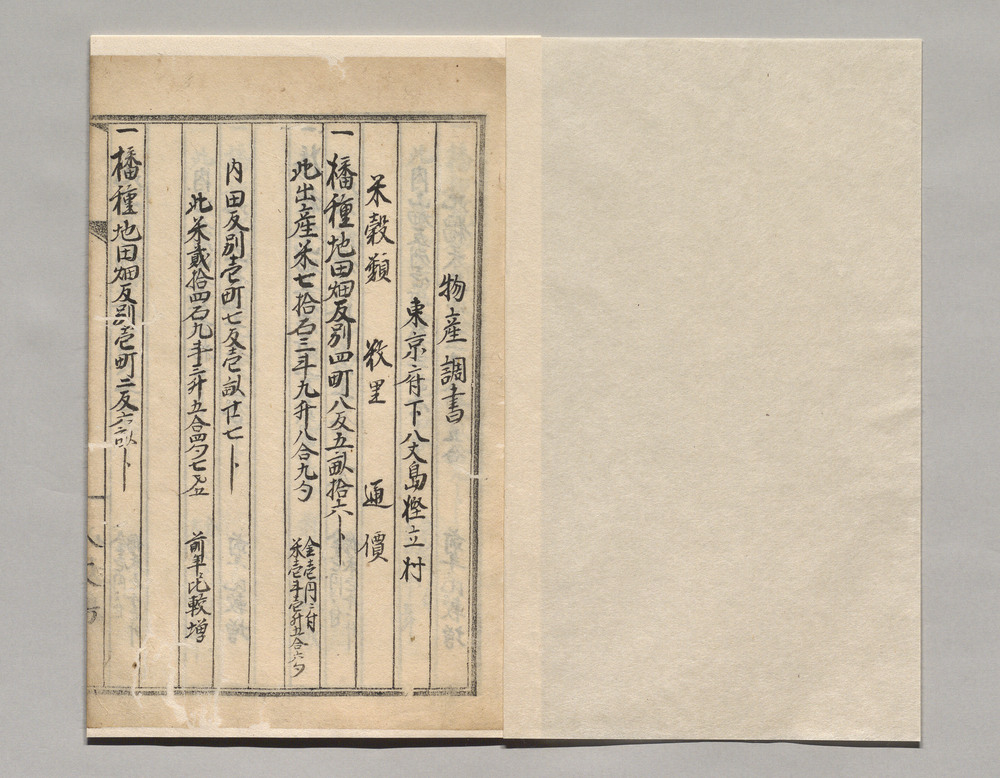 物産調書
東京府下八丈島樫立村
米穀類 数里 通價
一 播種地田畑反別四町八反五畝拾六歩
此出産米七拾石三斗九升八合九勺
金壱円ニ付
米壱斗壱升五合六勺
内田反別壱町七反壱畝廿七歩
此米貳拾四石九斗三升五合四勺七才五
前年比較増
一 播種地田畑反別壱町二反六畝歩